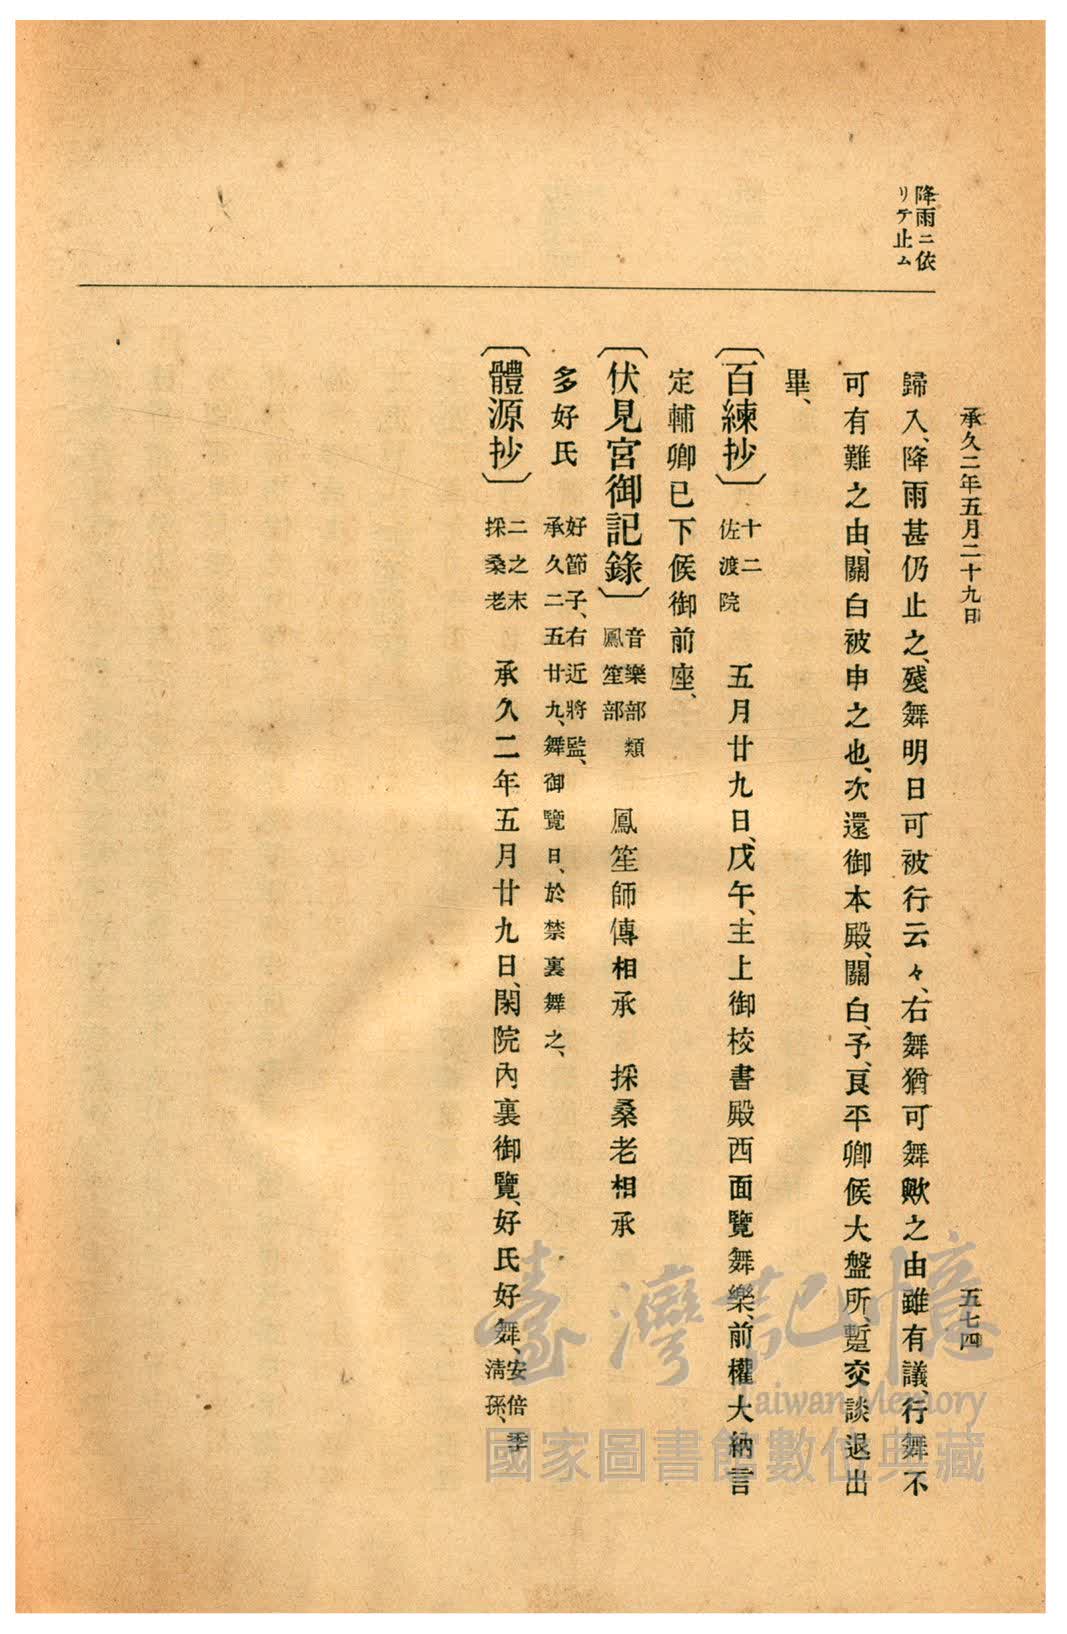 承久二年五月二十九日
五七四
降雨ニ依
リテ止ム
歸入、降雨甚仍止之、殘舞明日可被行云々、右舞猶可舞歟之由雖有議、行舞不
可有難之由、關白被申之也、次還御本殿、關白、予、良平卿候大盤所、蹔交談退出
畢、
〔百練抄〕
十二
佐渡院
五月廿九日、戊午、主上御校書殿西面覽舞樂、前權大納言
定輔卿已下候御前座、
〔伏見宮御記錄〕
音樂部類
鳳笙部
鳳笙師傳相承　採桑老相承
多好氏
好節子、右近將監、
承久二五廿九、舞御覽日、於禁裏舞之、
〔體源抄〕
二之末
採桑老
承久二年五月廿九日、閑院內裏御覽、好氏好舞、
安倍季
淸孫、
臺灣記憶
Taiwan Memory
國家圖書館數位典藏